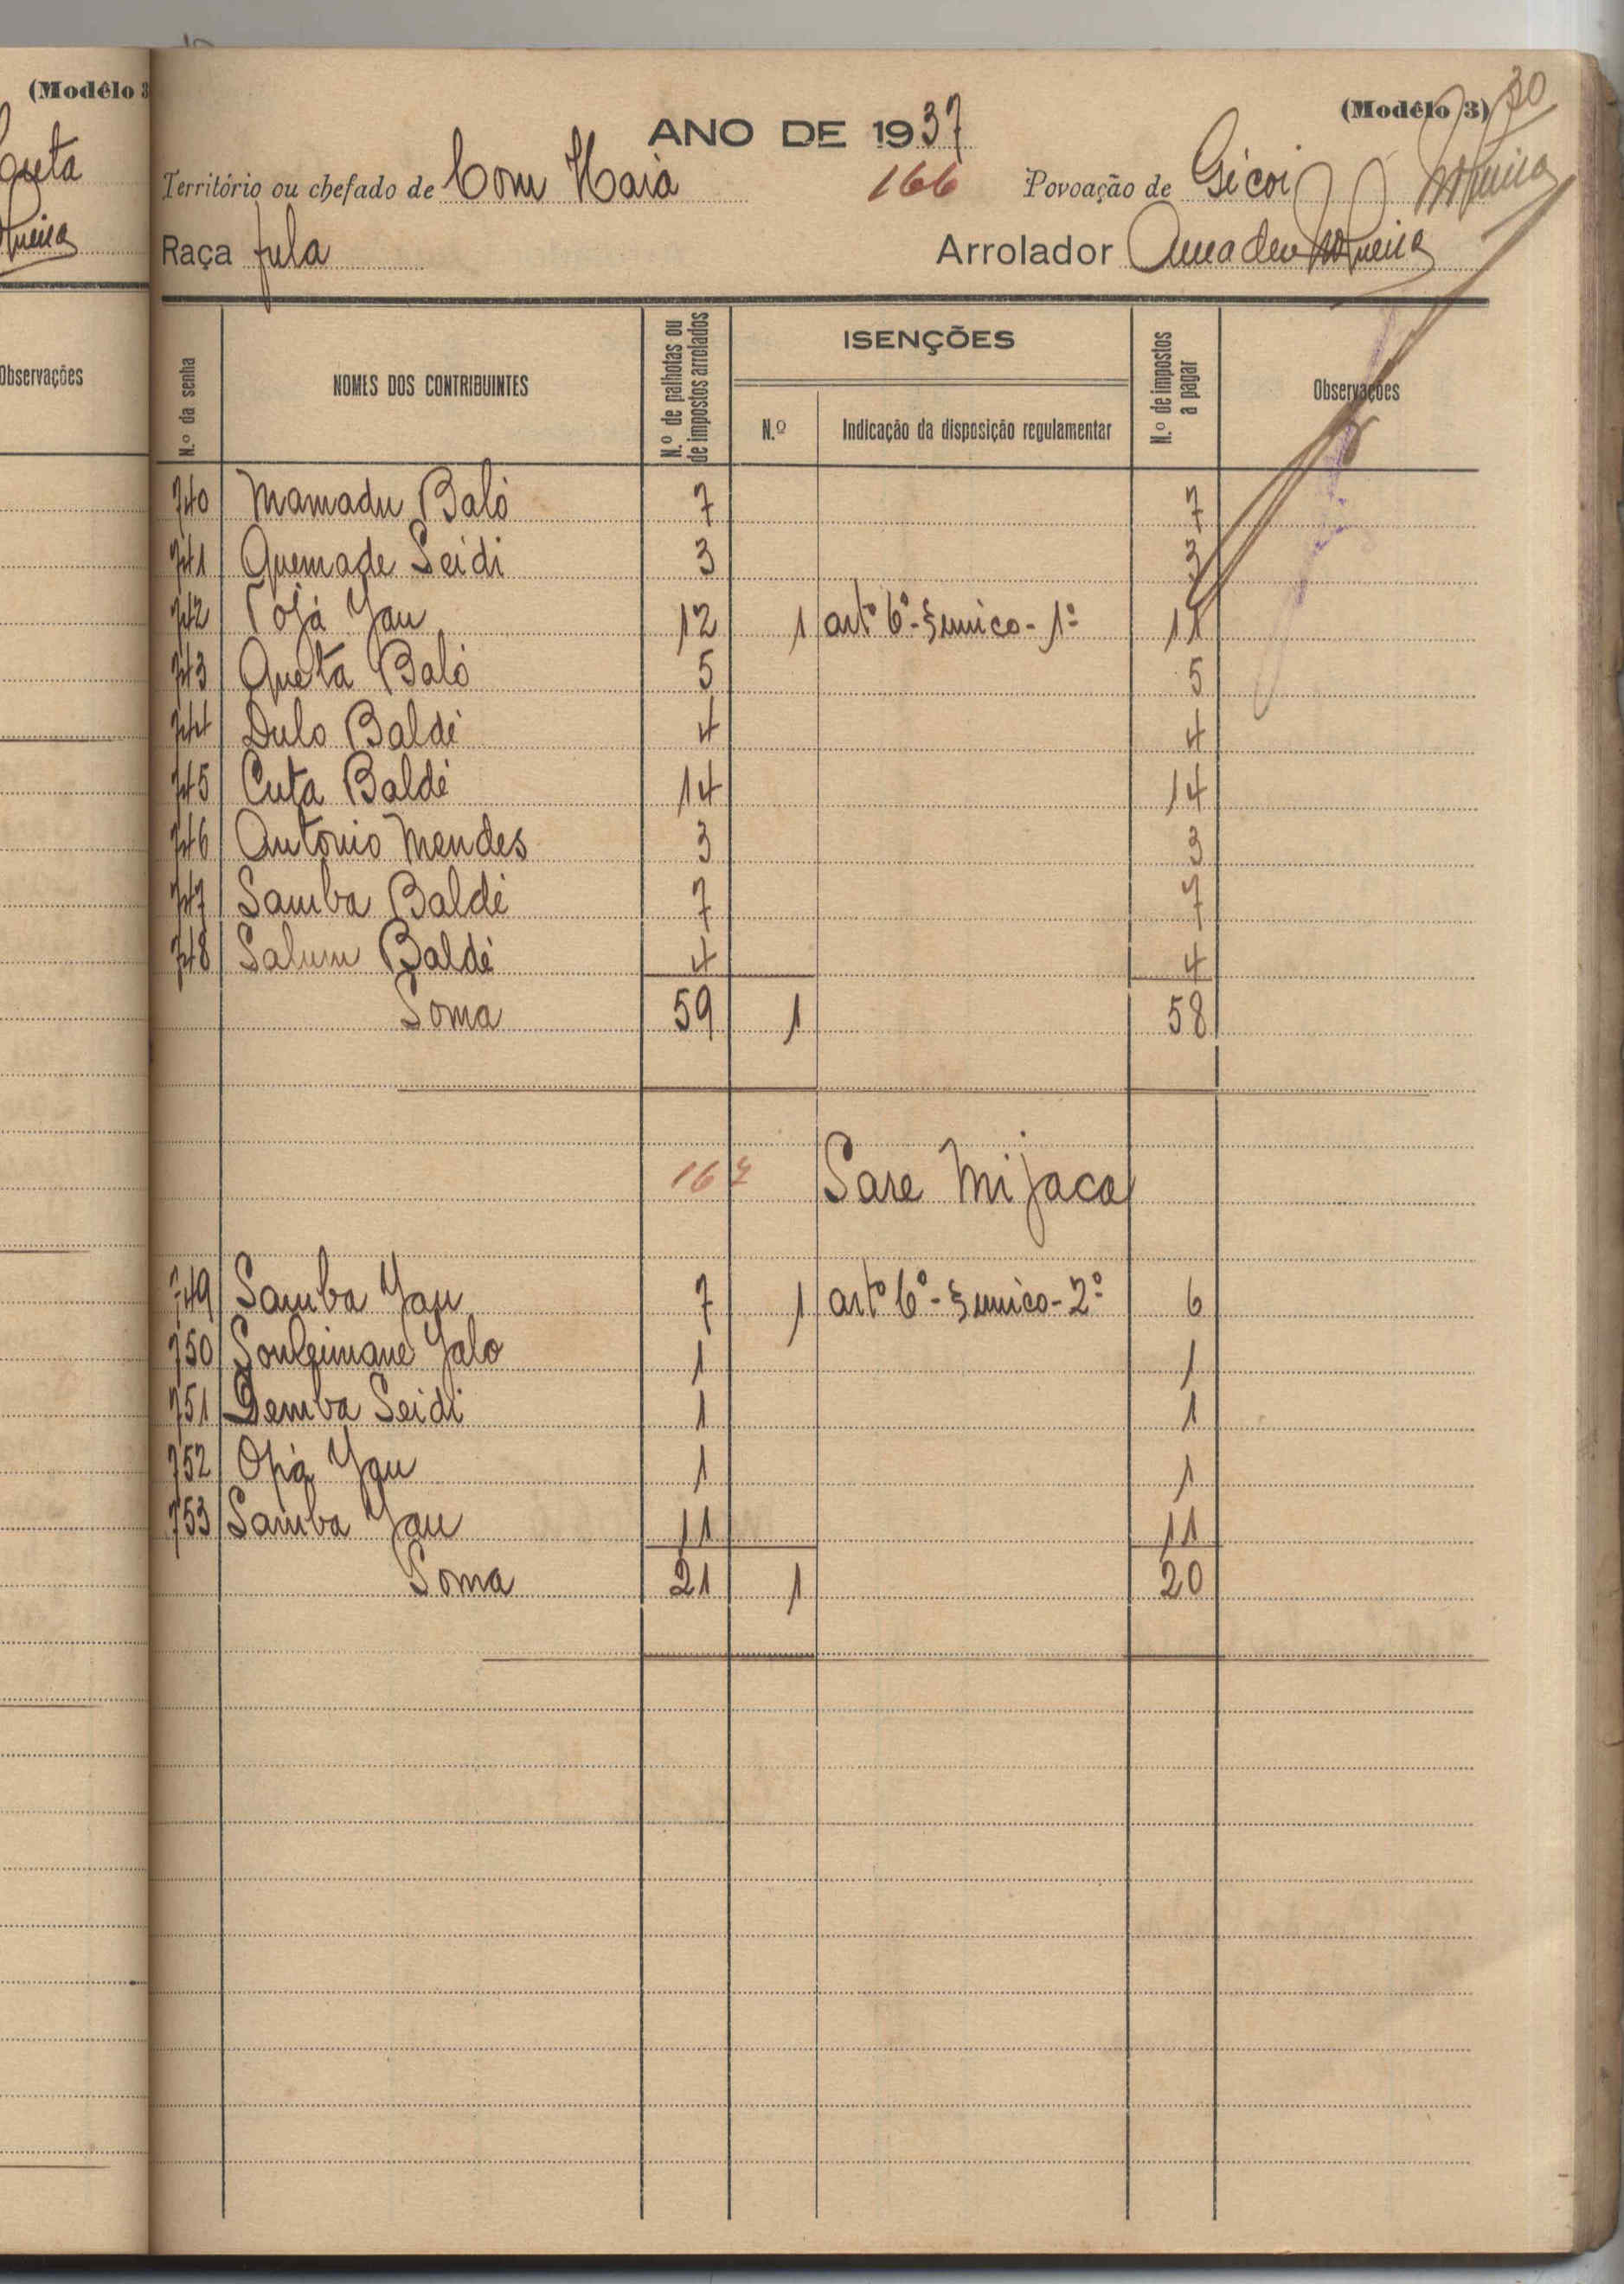 (Modêlo 3
Observações
(Modêlo 3) 30
ANO DE 1937
Território ou chefado de Com Haiá 166 Povoação de Gicoi
Raça fula Arrolador Amadeu
N.º da senha NOMES DOS CONTRIBUINTES N.º de palhotas ou de impostos arrolados ISENÇÕES N.º Indicação da disposição regulamentar N.º de impostos a pagar Observações
740 Mamadu Baló 7 7
741 Quemade Seidi 3 3
742 Yau 12 1 artº 6º - § unico - 1º 11
743 Queta Baló 5 5
744 Dulo Baldé 4 4
745 Cuta Baldé 14 14
746 Antonio Mendes 3 3
747 Samba Baldé 7 7
748 Salum Baldé 4 4
Soma 59 1 58
167 Sare Mijaca
749 Samba Yau 7 1 artº 6º - § unico - 2º 6
750 Souleimane Jalo 1 1
751 Demba Seidi 1 1
752 Opá Yau 1 1
753 Samba Yau 11 11
Soma 21 1 20